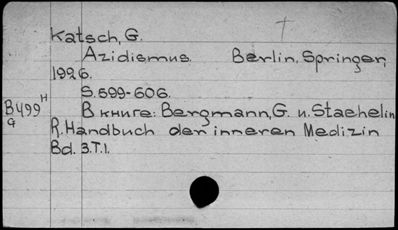 Katsch, G.
Azidismus. Berlin, Springer,
1926.
S. 599-606.
B499 H
G
В книге: Bergmann, G. u. Staehelin
R. Handbuch der inneren Medizin
Bd. 3. T. 1.